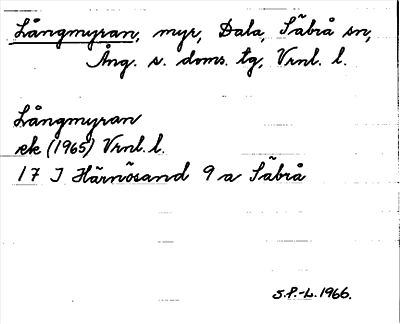 Långmyran, myr, Dala, Säbrå sn,
Ång. s. doms. tg, Vrnl. l.
Långmyran
ek (1965) Vrnl. l.
17 I Härnösand 9 a Säbrå
S.P.-L. 1966.